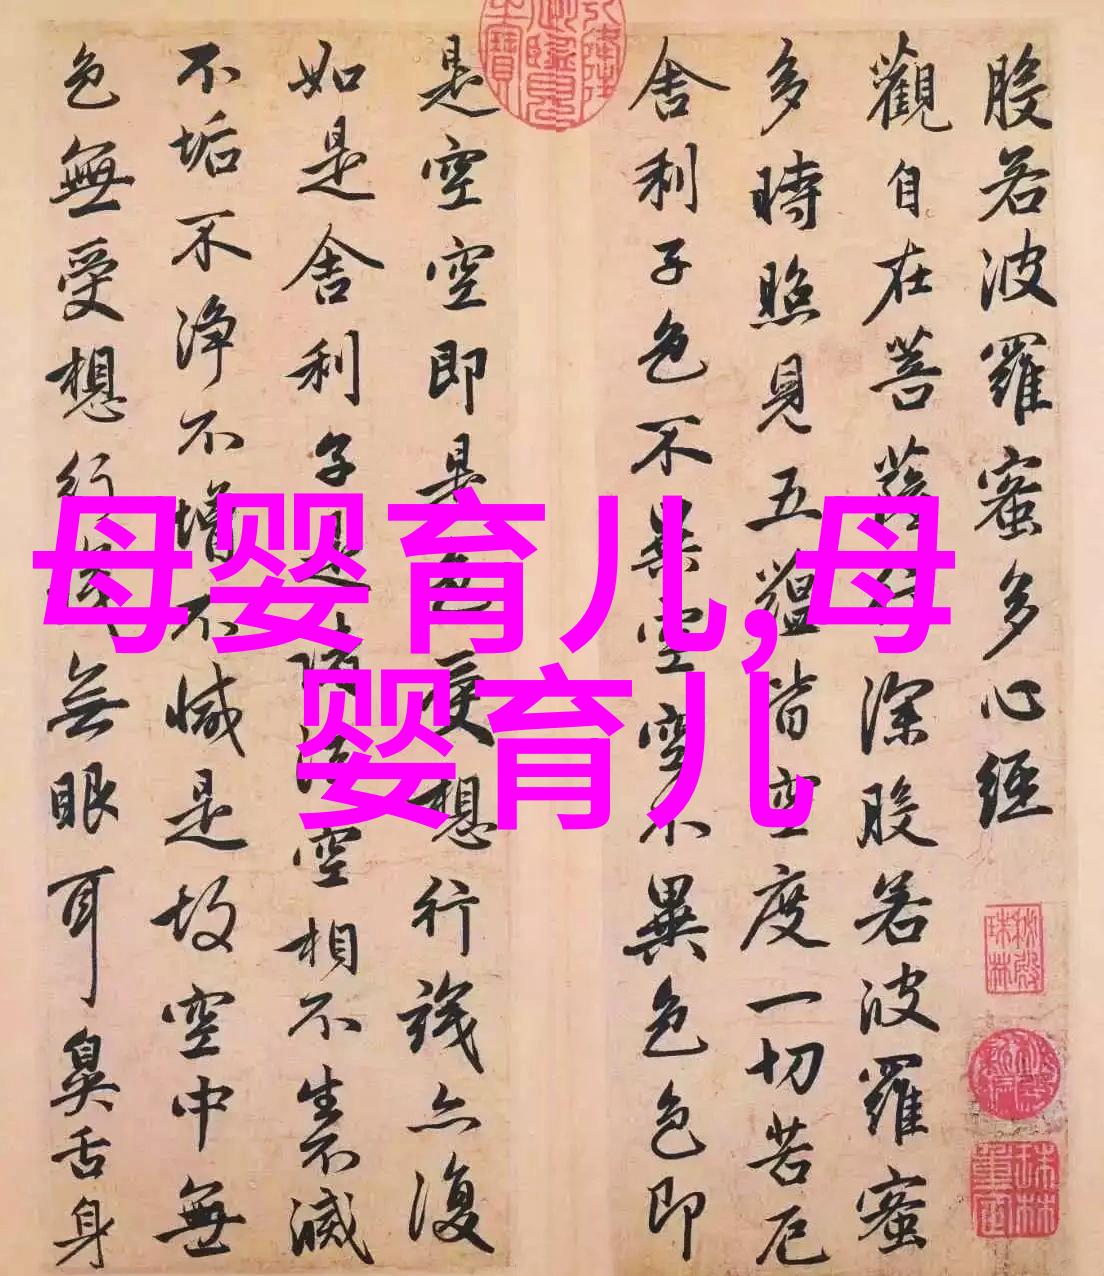 般若波羅蜜多心經
觀自在菩薩行深般若波羅蜜
多時照見五蘊皆空度一切苦厄
舍利子色不異空空不異色色即
是空空即是色受想行識亦復
如是舍利子是諸法空相不生不滅
不垢不净不增不減是故空中無
色無受想行識無眼耳鼻舌身
母婴育儿,母
婴育儿
秘殿
珠林